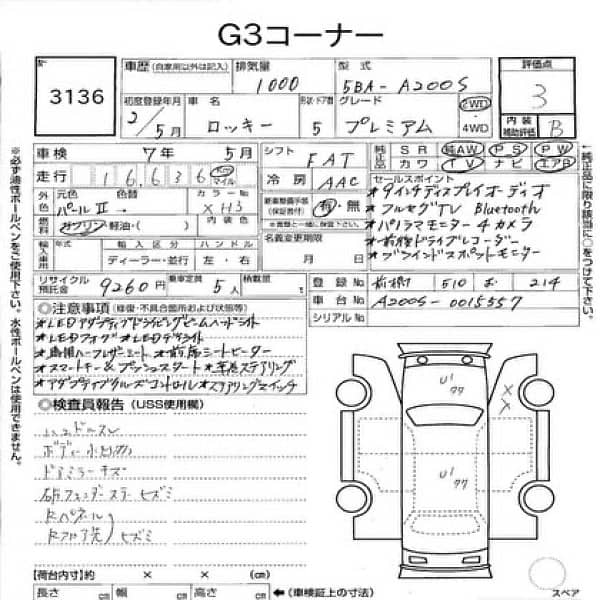 G3コーナー
3136
車歴 (自家用以外は記入)
排気量
1000
型式
5BA-A200S
評価点
3
初度登録年月
2/5月
車名
ロッキー
形状・ドア数
5
グレード
プレミアム
2WD・4WD
内装補助評価 B
車検 7年 5月
シフト FAT
純正品 SR 純AW PS PW
カワ TV ナビ エアB
走行 16,636
マイル
冷房 AAC
セールスポイント
★9インチディスプレイオーディオ
★フルセグTV Bluetooth
★パノラマモニター4カメラ
★前後ドライブレコーダー
★ブラインドスポットモニター
外色 元色 色替 カラーNo
パールⅡ → XH3
内装色
燃料 ガソリン・軽油・( )
新車整備手帳(保証書付) 有・無
※買主と一緒に保管し、
名義変更期限
月 日
輸入車用 年式 輸入区分 ハンドル
ディーラー・並行 左・右
リサイクル預託金 9260円
乗車定員 5人
積載量 t
登録No 前橋 510 ま 214
車台No A200S-0015557
シリアルNo
◎注意事項 (修復・不具合箇所および状態等)
★LEDアダプティブドライビングビームヘッドライト
★LEDフォグ ★LEDデイライト
★専用ハーフレザーシート ★前席シートヒーター
★スマートキー&プッシュスタート ★革巻ステアリング
★アダプティブクルーズコントロール ★ステアリングスイッチ
◎検査員報告 (USS使用欄)
ボディー小キズ
ドアミラーキズ
Rパネル
Rフロア先 ヒズミ
U1
77
X
X
U1
77
【荷台内寸】約 × × (cm)
長さ 幅 高さ
cm cm cm
←(車検証上の寸法)
スペア
※必ず油性ボールペンをご使用下さい。水性ボールペンは使用できません。
←純正品に限り該当に○をつけて下さい。